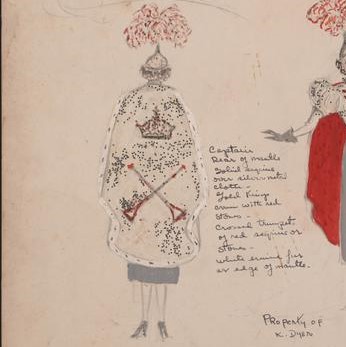 Captain
Rear of mantle
Solid sequins
over silver metal
cloth -
Gold Kings
crown with red
stones -
Crossed trumpet
of red sequins or
stones -
white ermine fur
as edge of mantle.
Property of
K. Dyer